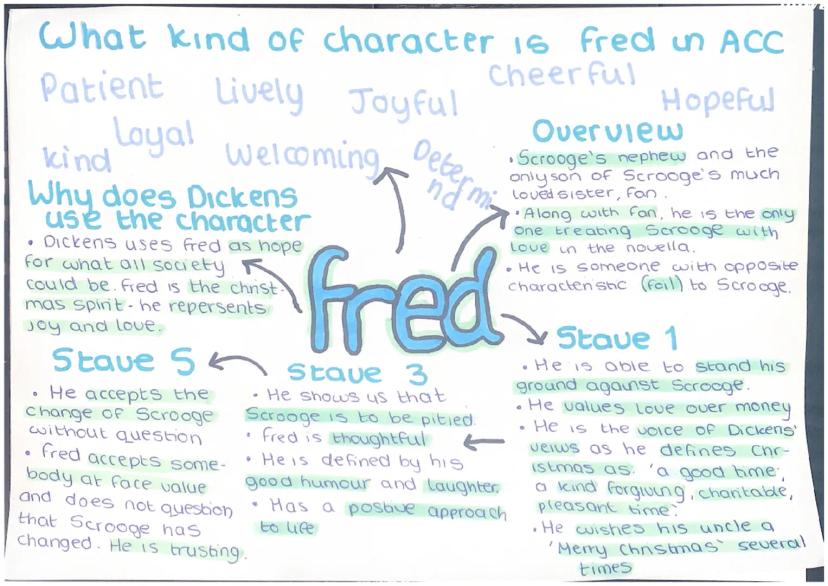 What kind of character is fred in ACC
Patient Lively Joyful Cheerful Hopeful
kind Loyal Welcoming Determi
nd
Overview
• Scrooge's nephew and the
only son of Scrooge's much
loved sister, fan.
• Along with fan, he is the only
one treating Scrooge with
love in the novella.
• He is someone with opposite
characteristic (foil) to Scrooge.
Why does Dickens
use the character
• Dickens uses fred as hope
for what all society
could be. fred is the christ-
mas spirit - he repersents
joy and love.
fred
Stave 1
• He is able to stand his
ground against Scrooge.
• He values love over money
• He is the voice of Dickens'
veiws as he defines Chr-
istmas as: 'a good time;
a kind forgiving, charitable,
pleasant time.'
• He wishes his uncle a
'Merry Christmas' several
times
Stave 3
• He shows us that
Scrooge is to be pitied.
• fred is thoughtful
• He is defined by his
good humour and laughter.
• Has a postive approach
to life
Stave 5
• He accepts the
change of Scrooge
without question
• fred accepts some-
body at face value
and does not question
that Scrooge has
changed. He is trusting.